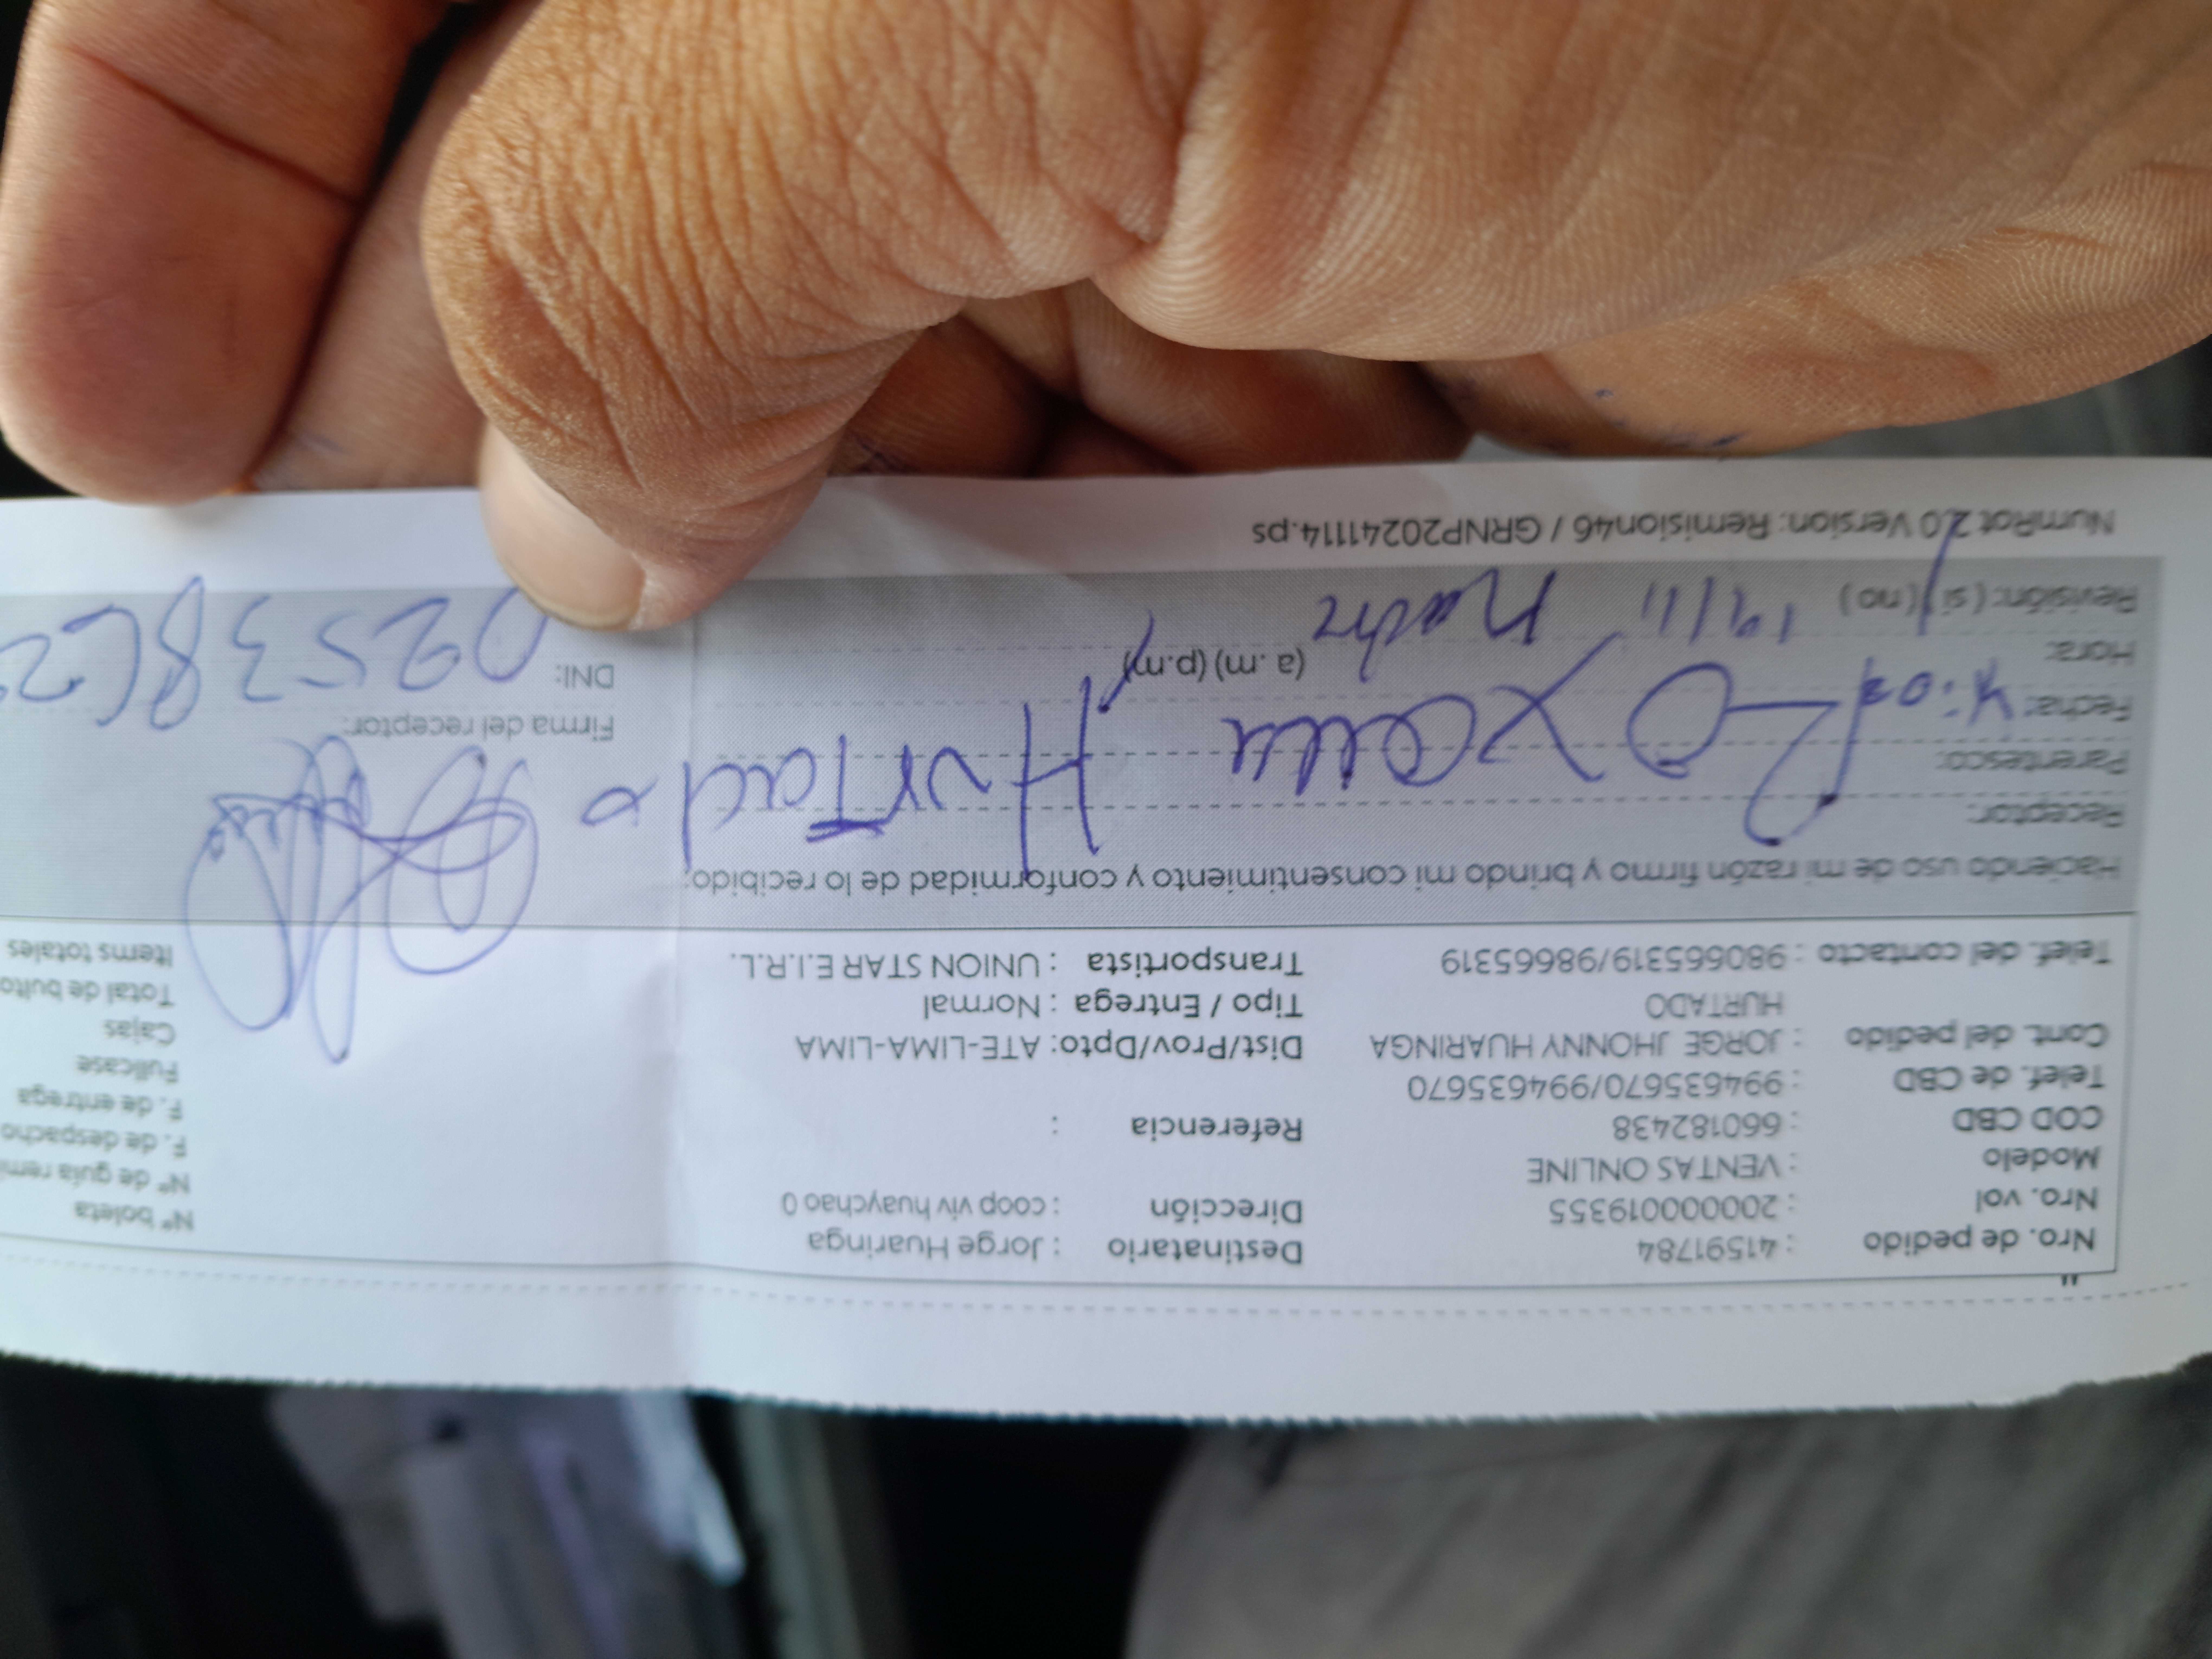 Nro. de pedido : 41591784 Destinatario : Jorge Huaringa Nº boleta
Nro. vol : 20000019355 Dirección : coop viv huaychao 0 Nº de guía remi
Modelo : VENTAS ONLINE F. de despacho
COD CBD : 660182438 Referencia : F. de entrega
Telef. de CBD : 994635670/994635670 Fullcase
Cont. del pedido : JORGE JHONNY HUARINGA Dist/Prov/Dpto: ATE-LIMA-LIMA Cajas
HURTADO Tipo / Entrega : Normal Total de bulto
Telef. del contacto : 980665319/98665319 Transportista : UNION STAR E.I.R.L. Items totales
Haciendo uso de mi razón firmo y brindo mi consentimiento y conformidad de lo recibido:
Receptor:
Parentesco: Hurtado
Fecha: Firma del receptor:
Hora: (a.m) (p.m) DNI:
Revisión: (si) (no) 19/11
NumRot 2.0 Version: Remision46 / GRNP20241114.ps